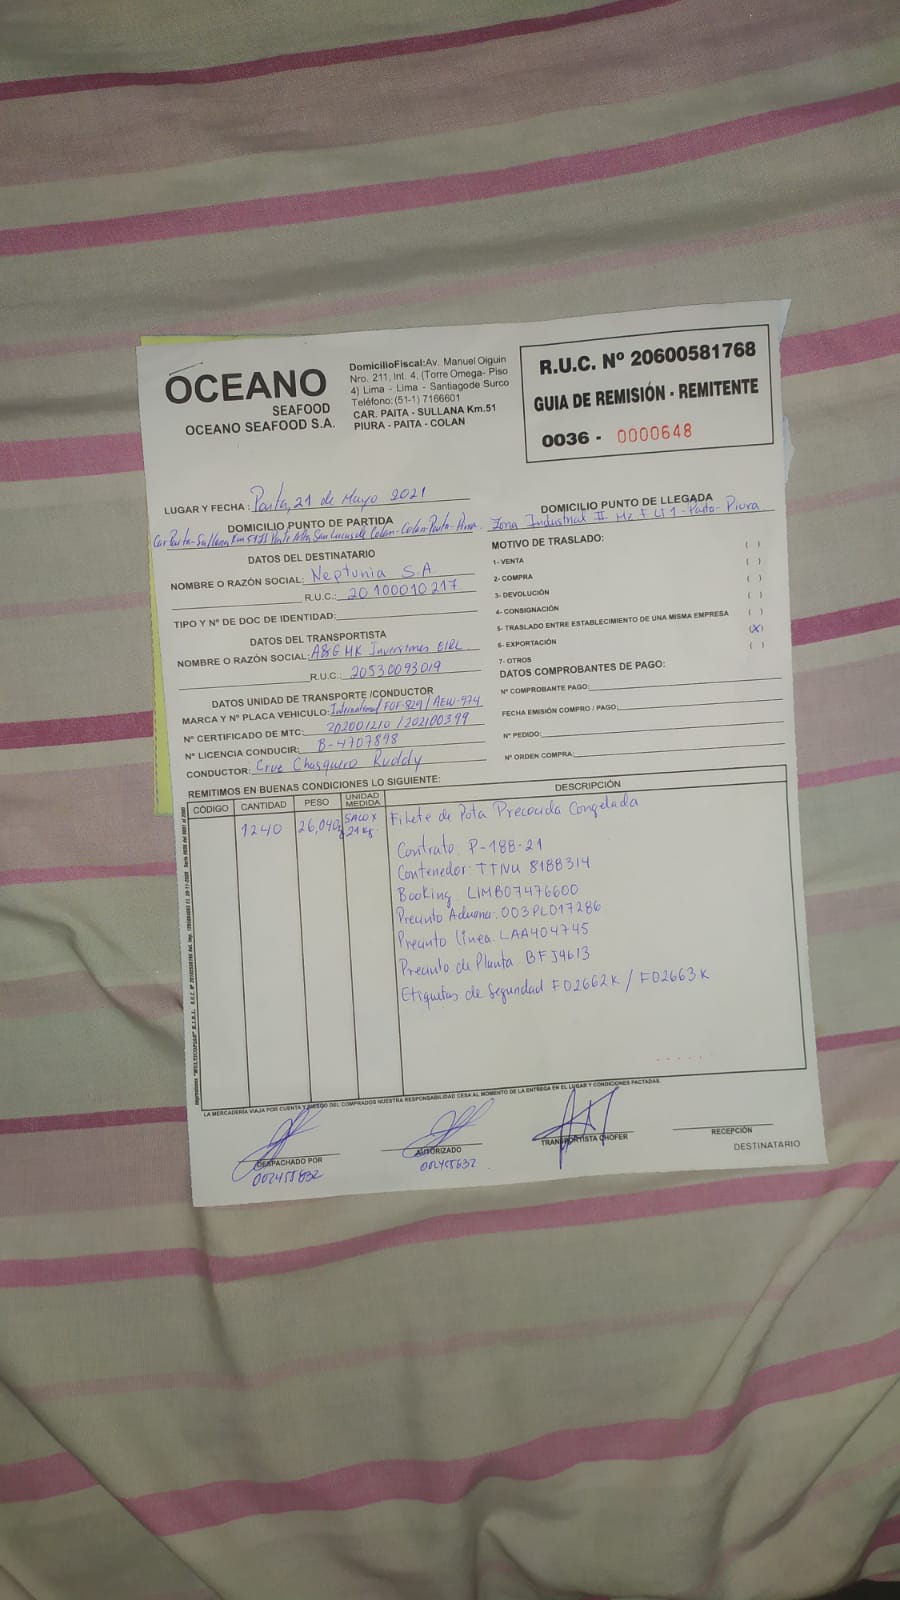 OCEANO
SEAFOOD
OCEANO SEAFOOD S.A.
DomicilioFiscal:Av. Manuel Olguin
Nro. 211, Int. 4, (Torre Omega- Piso
4) Lima - Lima - Santiagode Surco
Teléfono:(51-1) 7166601
CAR. PAITA - SULLANA Km.51
PIURA - PAITA - COLAN
R.U.C. Nº 20600581768
GUIA DE REMISIÓN - REMITENTE
0036 - 0000648
LUGAR Y FECHA : Paita, 21 de Mayo 2021
DOMICILIO PUNTO DE PARTIDA
Car Paita-Sullana Km 51 Alta San Lucas de Colan-Colan-Paita-Piura.
DOMICILIO PUNTO DE LLEGADA
Zona Industrial II Mz F Lt 1 - Paita - Piura
DATOS DEL DESTINATARIO
NOMBRE O RAZÓN SOCIAL: Neptunia S.A.
R.U.C.: 20100010217
TIPO Y Nº DE DOC DE IDENTIDAD:
DATOS DEL TRANSPORTISTA
NOMBRE O RAZÓN SOCIAL: A&G HK Inversiones EIRL
R.U.C.: 20530093019
DATOS UNIDAD DE TRANSPORTE /CONDUCTOR
MARCA Y Nº PLACA VEHICULO: International F0F-829 / AEW-974
Nº CERTIFICADO DE MTC: 202001210 / 202100399
Nº LICENCIA CONDUCIR: B-4707898
CONDUCTOR: Cruz Chasquero Ruddy
MOTIVO DE TRASLADO:
1- VENTA ( )
2- COMPRA ( )
3- DEVOLUCIÓN ( )
4- CONSIGNACIÓN ( )
5- TRASLADO ENTRE ESTABLECIMIENTO DE UNA MISMA EMPRESA ( )
6- EXPORTACIÓN (X)
7- OTROS ( )
DATOS COMPROBANTES DE PAGO:
Nº COMPROBANTE PAGO:
FECHA EMISIÓN COMPRO / PAGO:
Nº PEDIDO:
Nº ORDEN COMPRA:
REMITIMOS EN BUENAS CONDICIONES LO SIGUIENTE:
CÓDIGO CANTIDAD PESO UNIDAD MEDIDA DESCRIPCIÓN
1240 26,040 Saco x 21 kg. Filete de Pota Precocida Congelada
Contrato: P-188-21
Contenedor: TTNU 8188314
Booking: LIMB07476600
Precinto Aduana: 003PL017286
Precinto línea: LAA404745
Precinto de Planta BFJ4613
Etiquetas de Seguridad F02662K / F02663K
LA MERCADERÍA VIAJA POR CUENTA Y RIESGO DEL COMPRADOS NUESTRA RESPONSABILIDAD CESA AL MOMENTO DE LA ENTREGA EN EL LUGAR Y CONDICIONES PACTADAS.
DESPACHADO POR
002455832
AUTORIZADO
002455832
TRANSPORTISTA CHOFER
RECEPCIÓN
DESTINATARIO